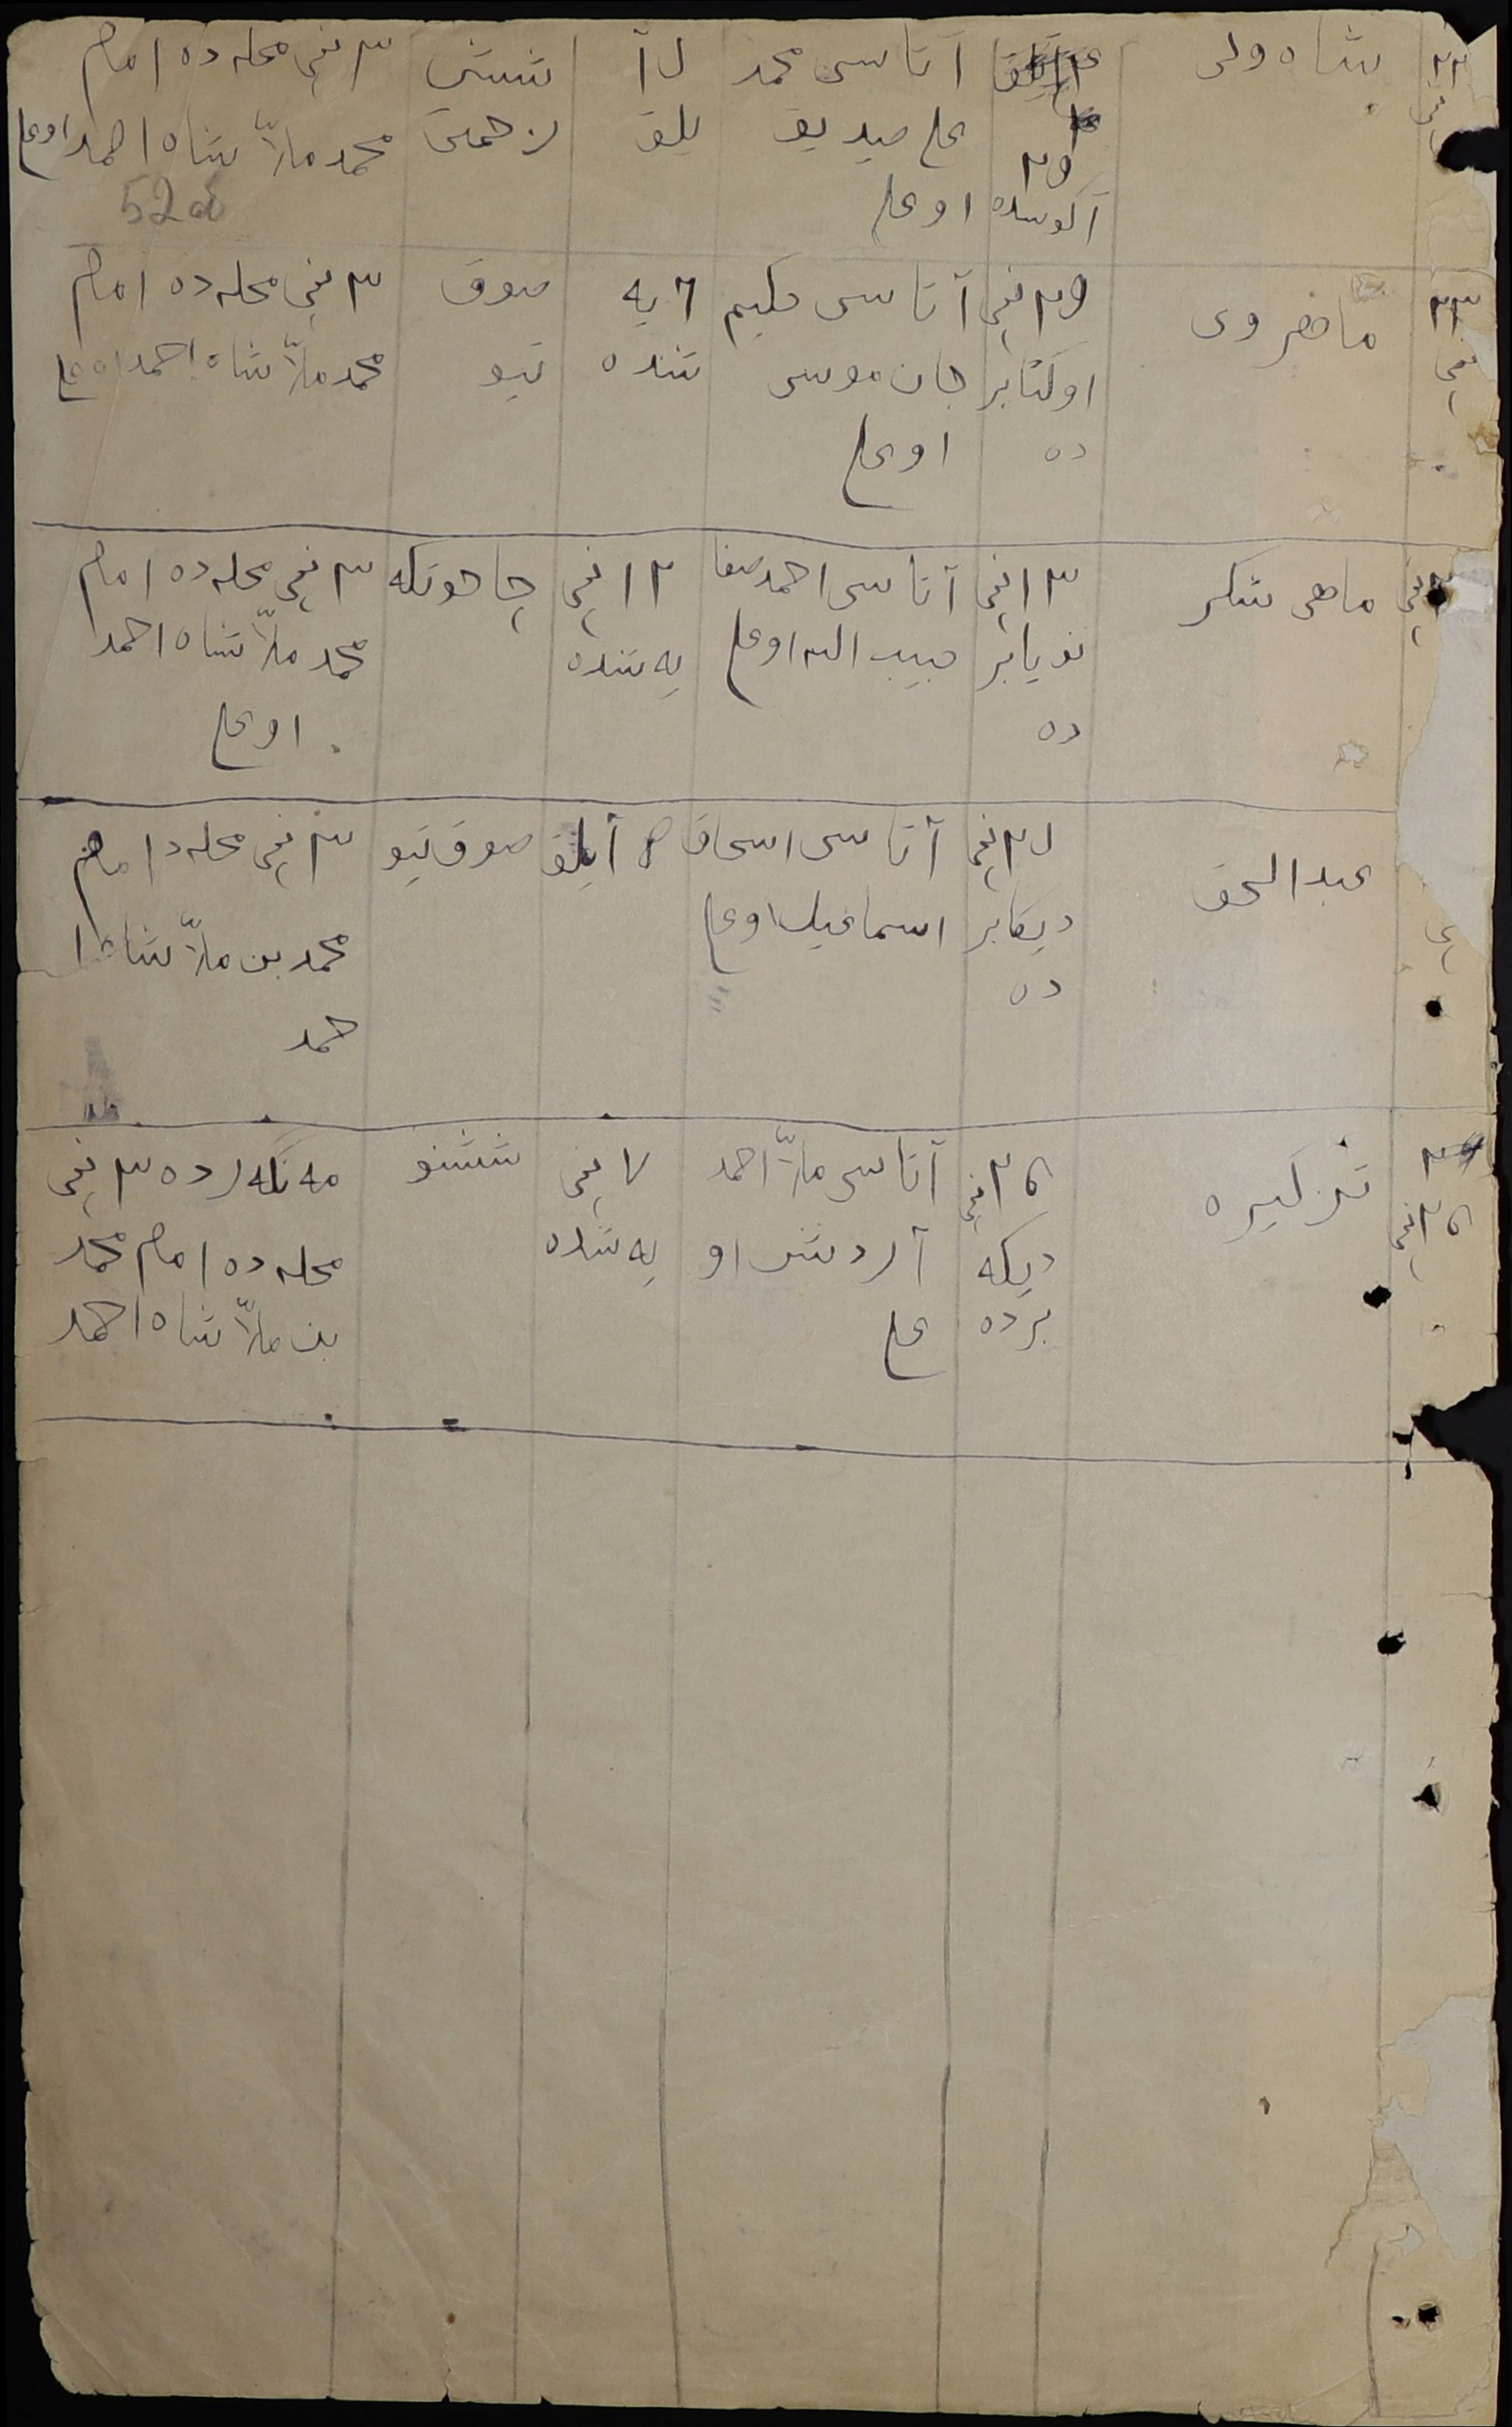 ٢٢ نچی
شاه ولی
٢٩
آگوسده
آتاسی محمد
علی صیدیق
اوعلی
ل آ
یلق
شیش
لا حمتی
٣ نچی محله ده امام
محمد ملاّ شاه احمد اوعلی
52об
٢٣ نچی
ماهروی
٢٩ نچی
اوکتابر
ده
آتاسی حکیم
جان موسی
اوعلی
٦ یه
شنده
صوق
تیو
٣ نچی محله ده امام
محمد ملاّ شاه احمد اوعلی
نچی
ماهی شکر
١٣ نچی
نویابر
ده
آتاسی احمد صفا
حبیب الله اوعلی
١٢ نچی
یه شنده
چاحوتکه
٣ نچی محله ده امام
محمد ملاّ شاه احمد
اوعلی
عبد الحق
نچی
دیکابر
ده
آتاسی اسحاق
اسماعیل اوعلی
آیلق
صوق تیو
٣ نچی محله د امام
محمد بن ملاّ شاه ا
حمد
٢٦ نچی
تزکیره
٢٦ نچی
دیکه
برده
آتاسی ملاّ احمد
آردنش او
علی
٧ نچی
یه شنده
ششنو
مه نگه رده ٣ نچی
محله ده امام محمد
بن ملاّ شاه احمد